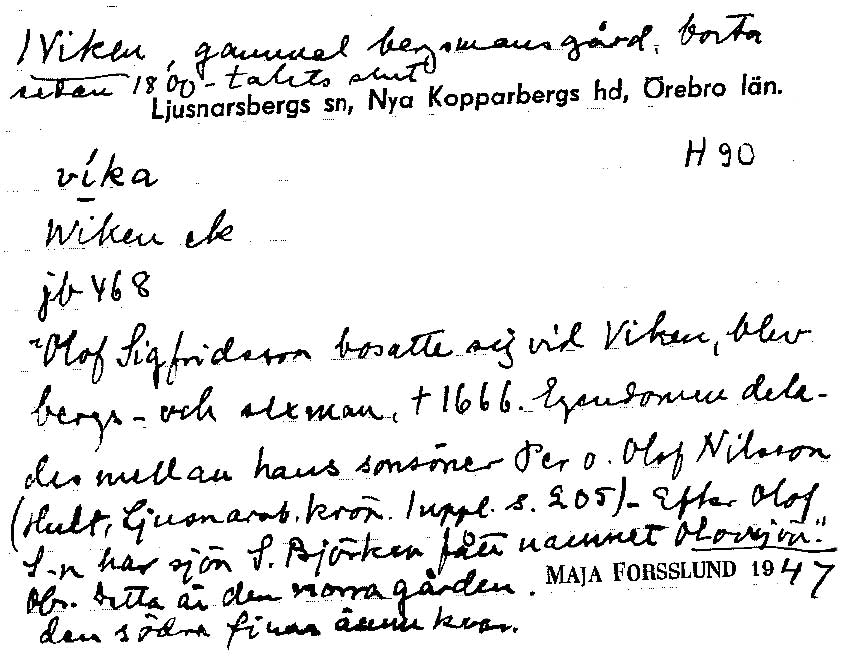 1 Viken, gammal bergsmansgård, borta
sedan 1800-talets slut
Ljusnarsbergs sn, Nya Kopparbergs hd, Örebro län.
H 90
víka
Wiken ek
jb 468
"Olof Sigfridsson bosatte sig vid Viken, blev
bergs- och sexman, † 1666. Egendomen dela-
des mellan hans sonsöner Per o. Olof Nilsson
(Hult, Ljusnarsb. krön. 1 uppl. s. 205)- Efter Olof
S-n har sjön S. Björken fått namnet Olovsjön."
Obs. Detta är den norra gården.
MAJA FORSSLUND 1947
den södra finns ännu kvar.